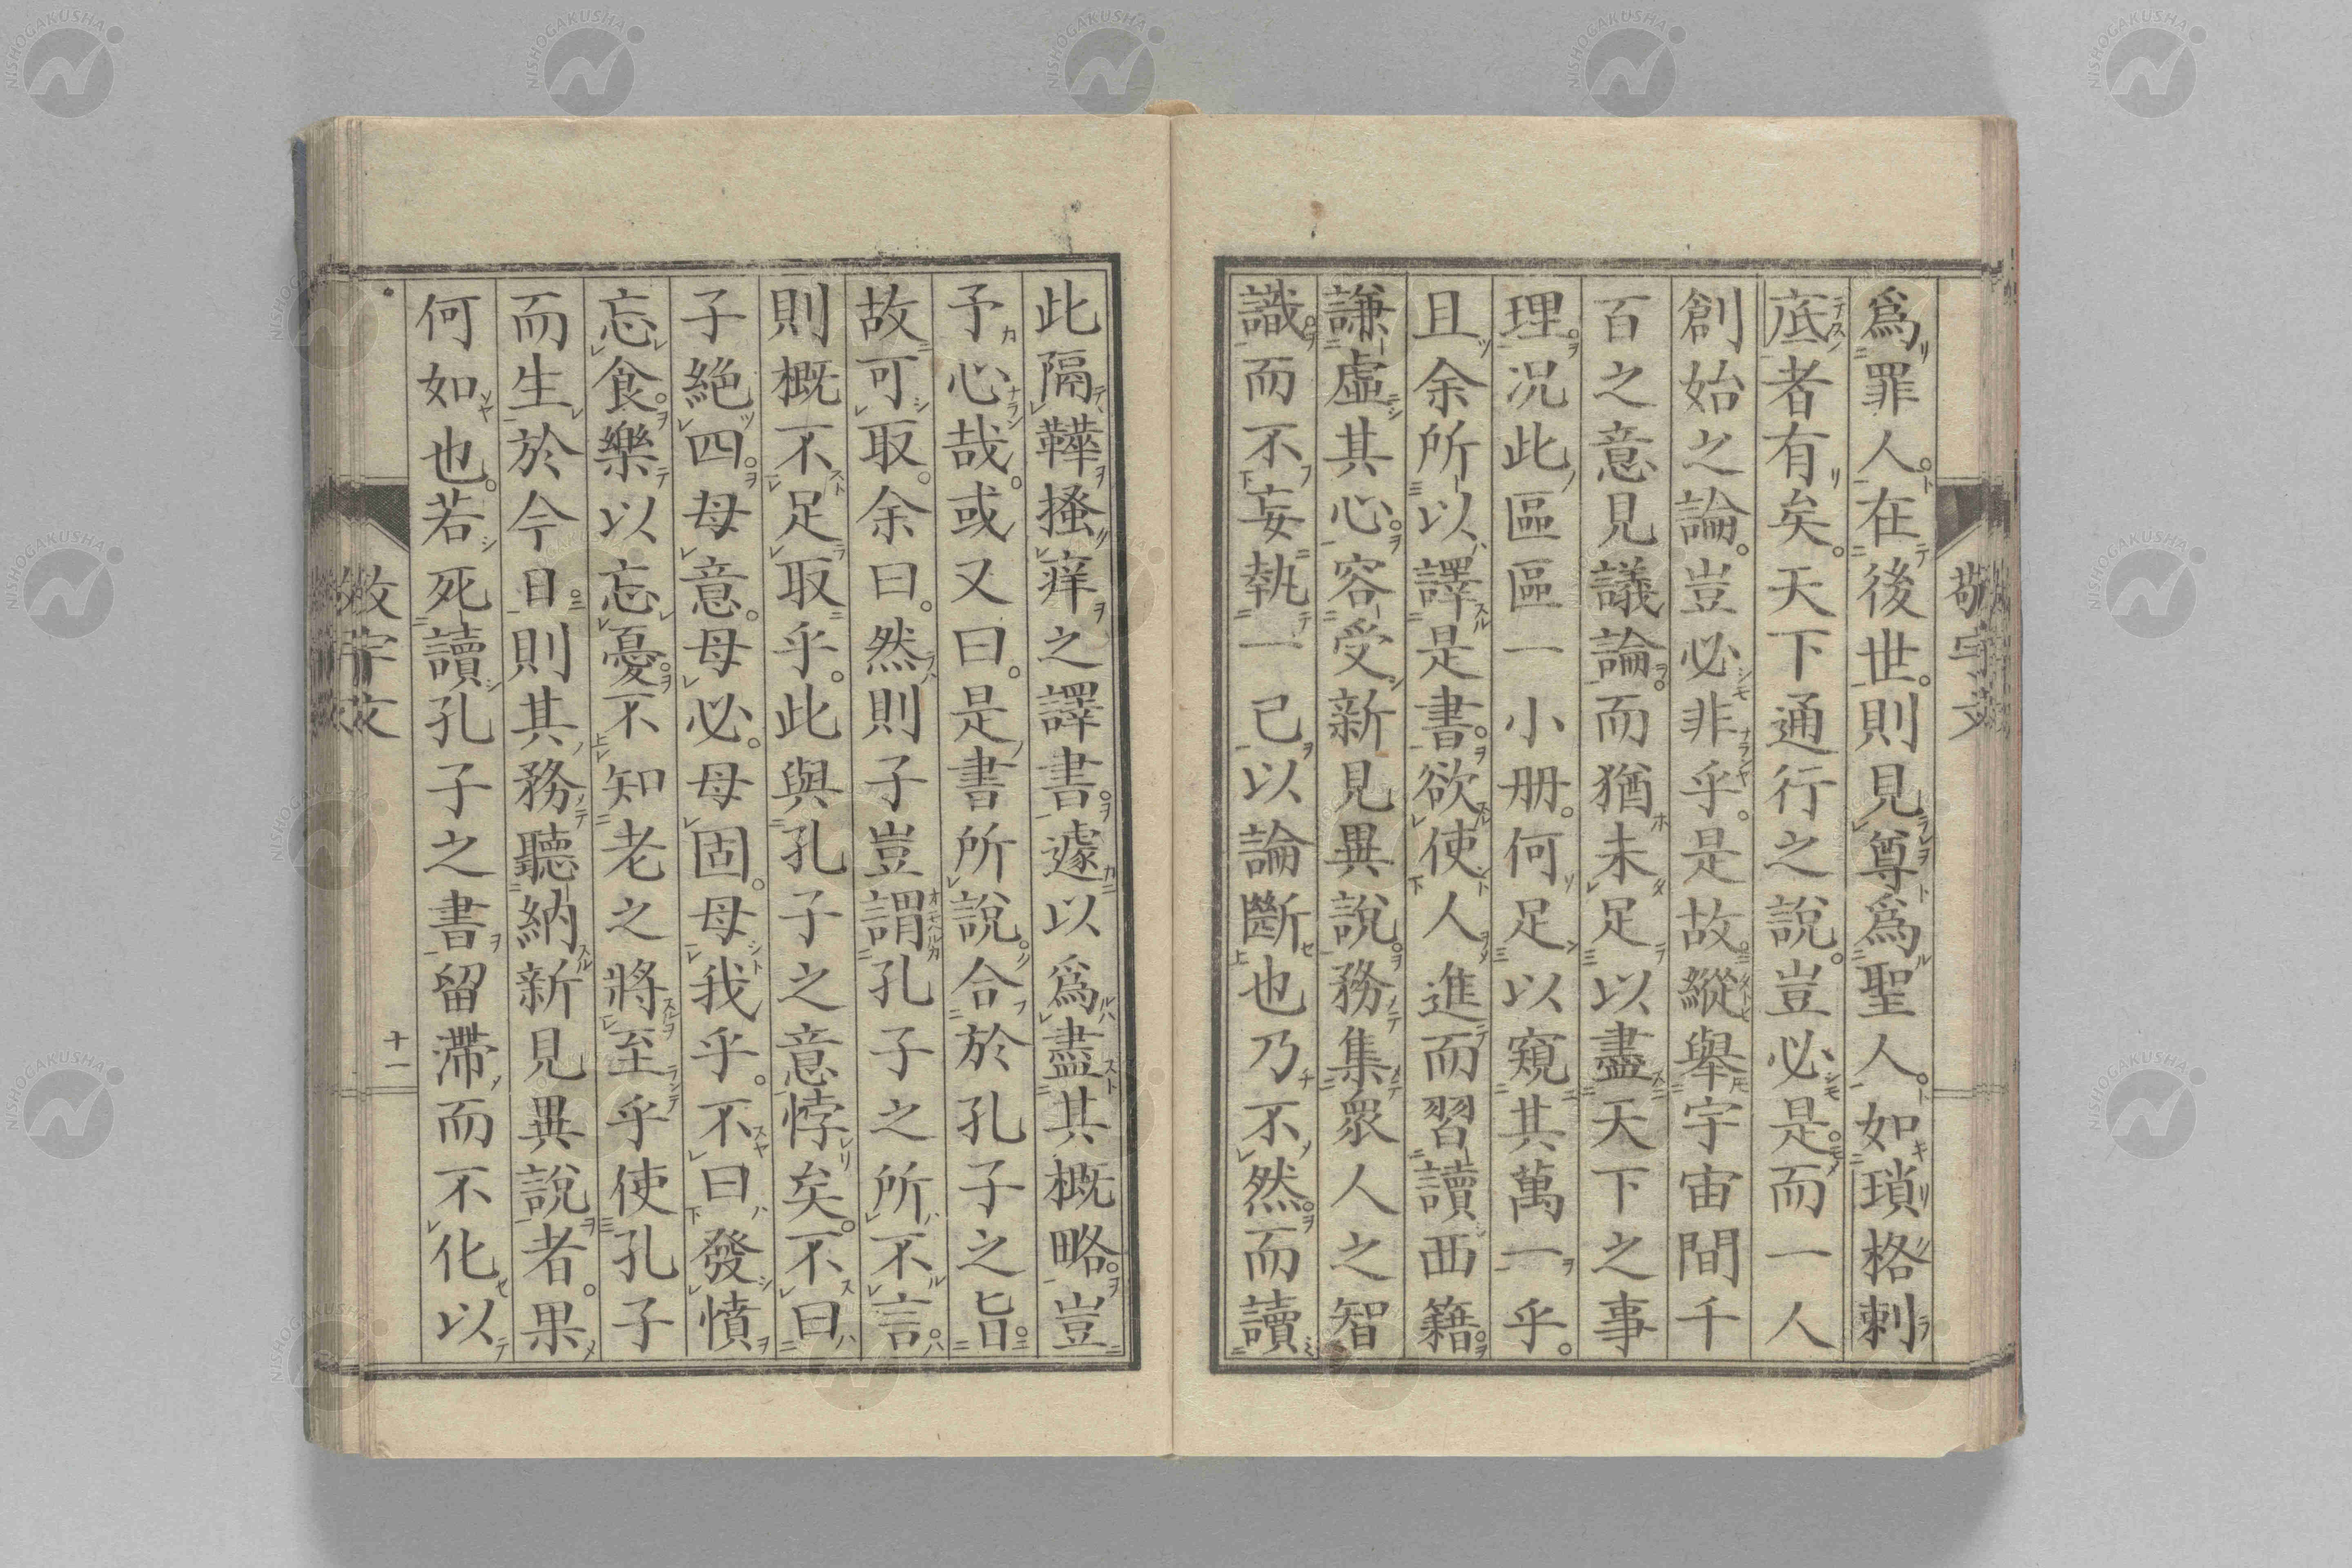 爲罪人在後世則見尊爲聖人如瑣格刺
底者有矣天下通行之說豈必是而一人
創始之論豈必非乎是故縱舉宇宙間千
百之意見議論而猶未足以盡天下之事
理况此區區一小册何足以窺其萬一乎
且余所以譯是書欲使人進而習讀西籍
謙虛其心容受新見異說務集衆人之智
識而不妄執一己以論斷也乃不然而讀
此隔鞾搔痒之譯書遽以爲盡其概略豈
予心哉或又曰是書所說合於孔子之旨
故可取余曰然則子豈謂孔子之所不言
則概不足取乎此與孔子之意悖矣不曰
子絕四毋意毋必毋固毋我乎不曰發憤
忘食樂以忘憂不知老之將至乎使孔子
而生於今日則其務聽納新見異說者果
何如也若死讀孔子之書留滯而不化以
敬宇文
十一
NISHOGAKUSHA